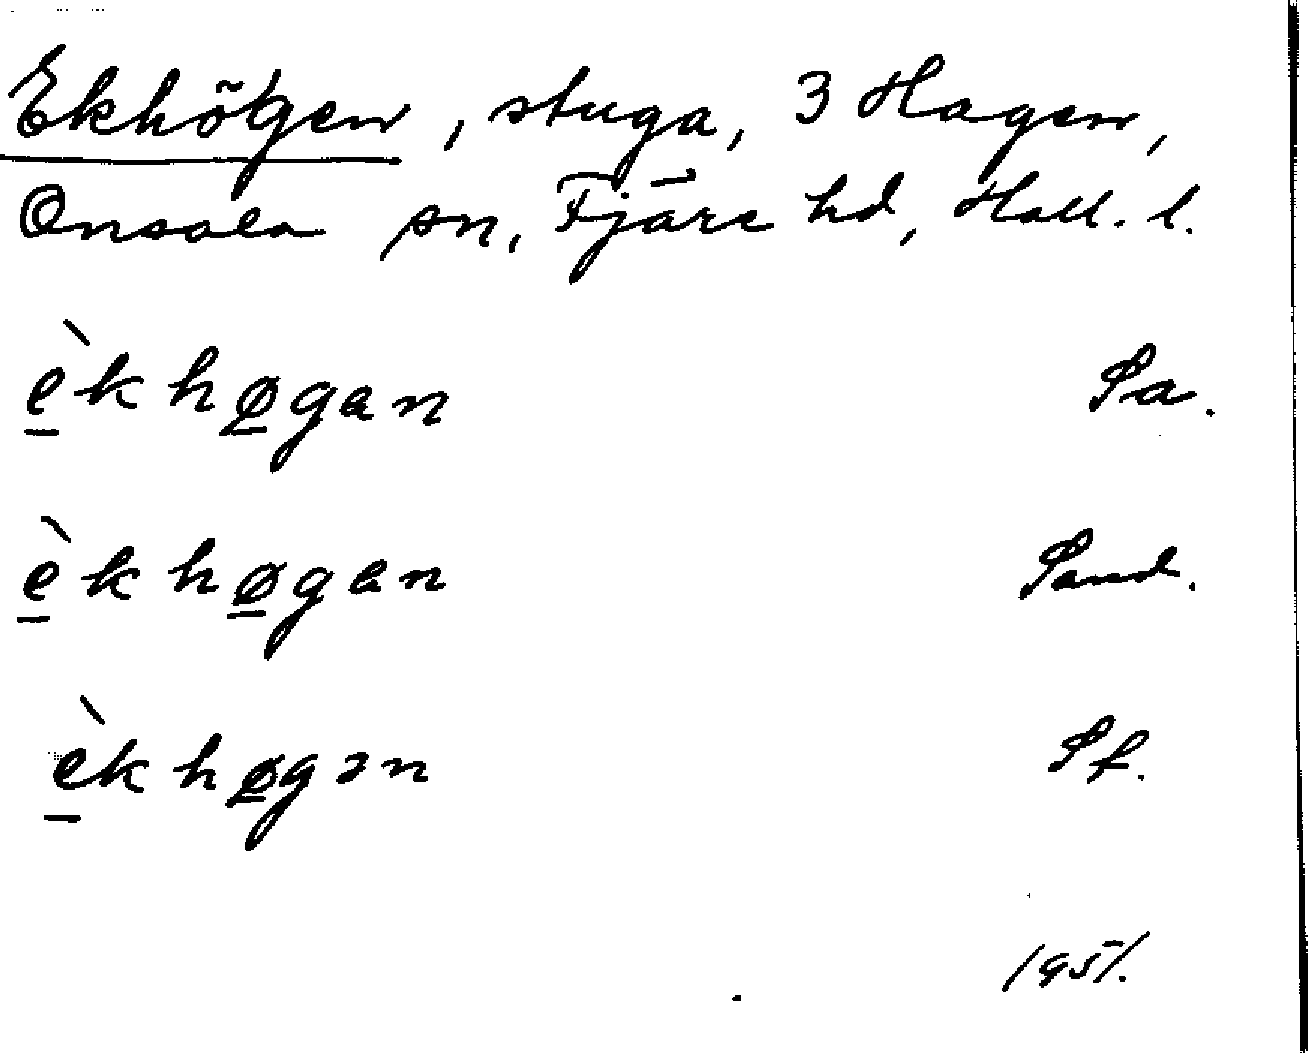 Ekhögen, stuga, 3 Hagen,
Onsala sn, Fjäre hd, Hall. l.
è̲k hø̲gan Sa.
è̲k hø̲gan Sand.
è̲k hø̲gən Sf.
1951.